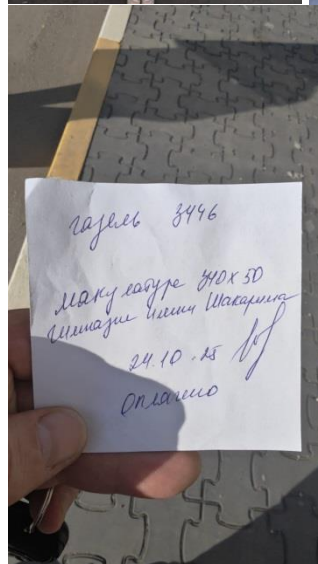 газель 3446
Макулатура 340х50
Гимназия имени Шакарима
24.10.25
Оплачено